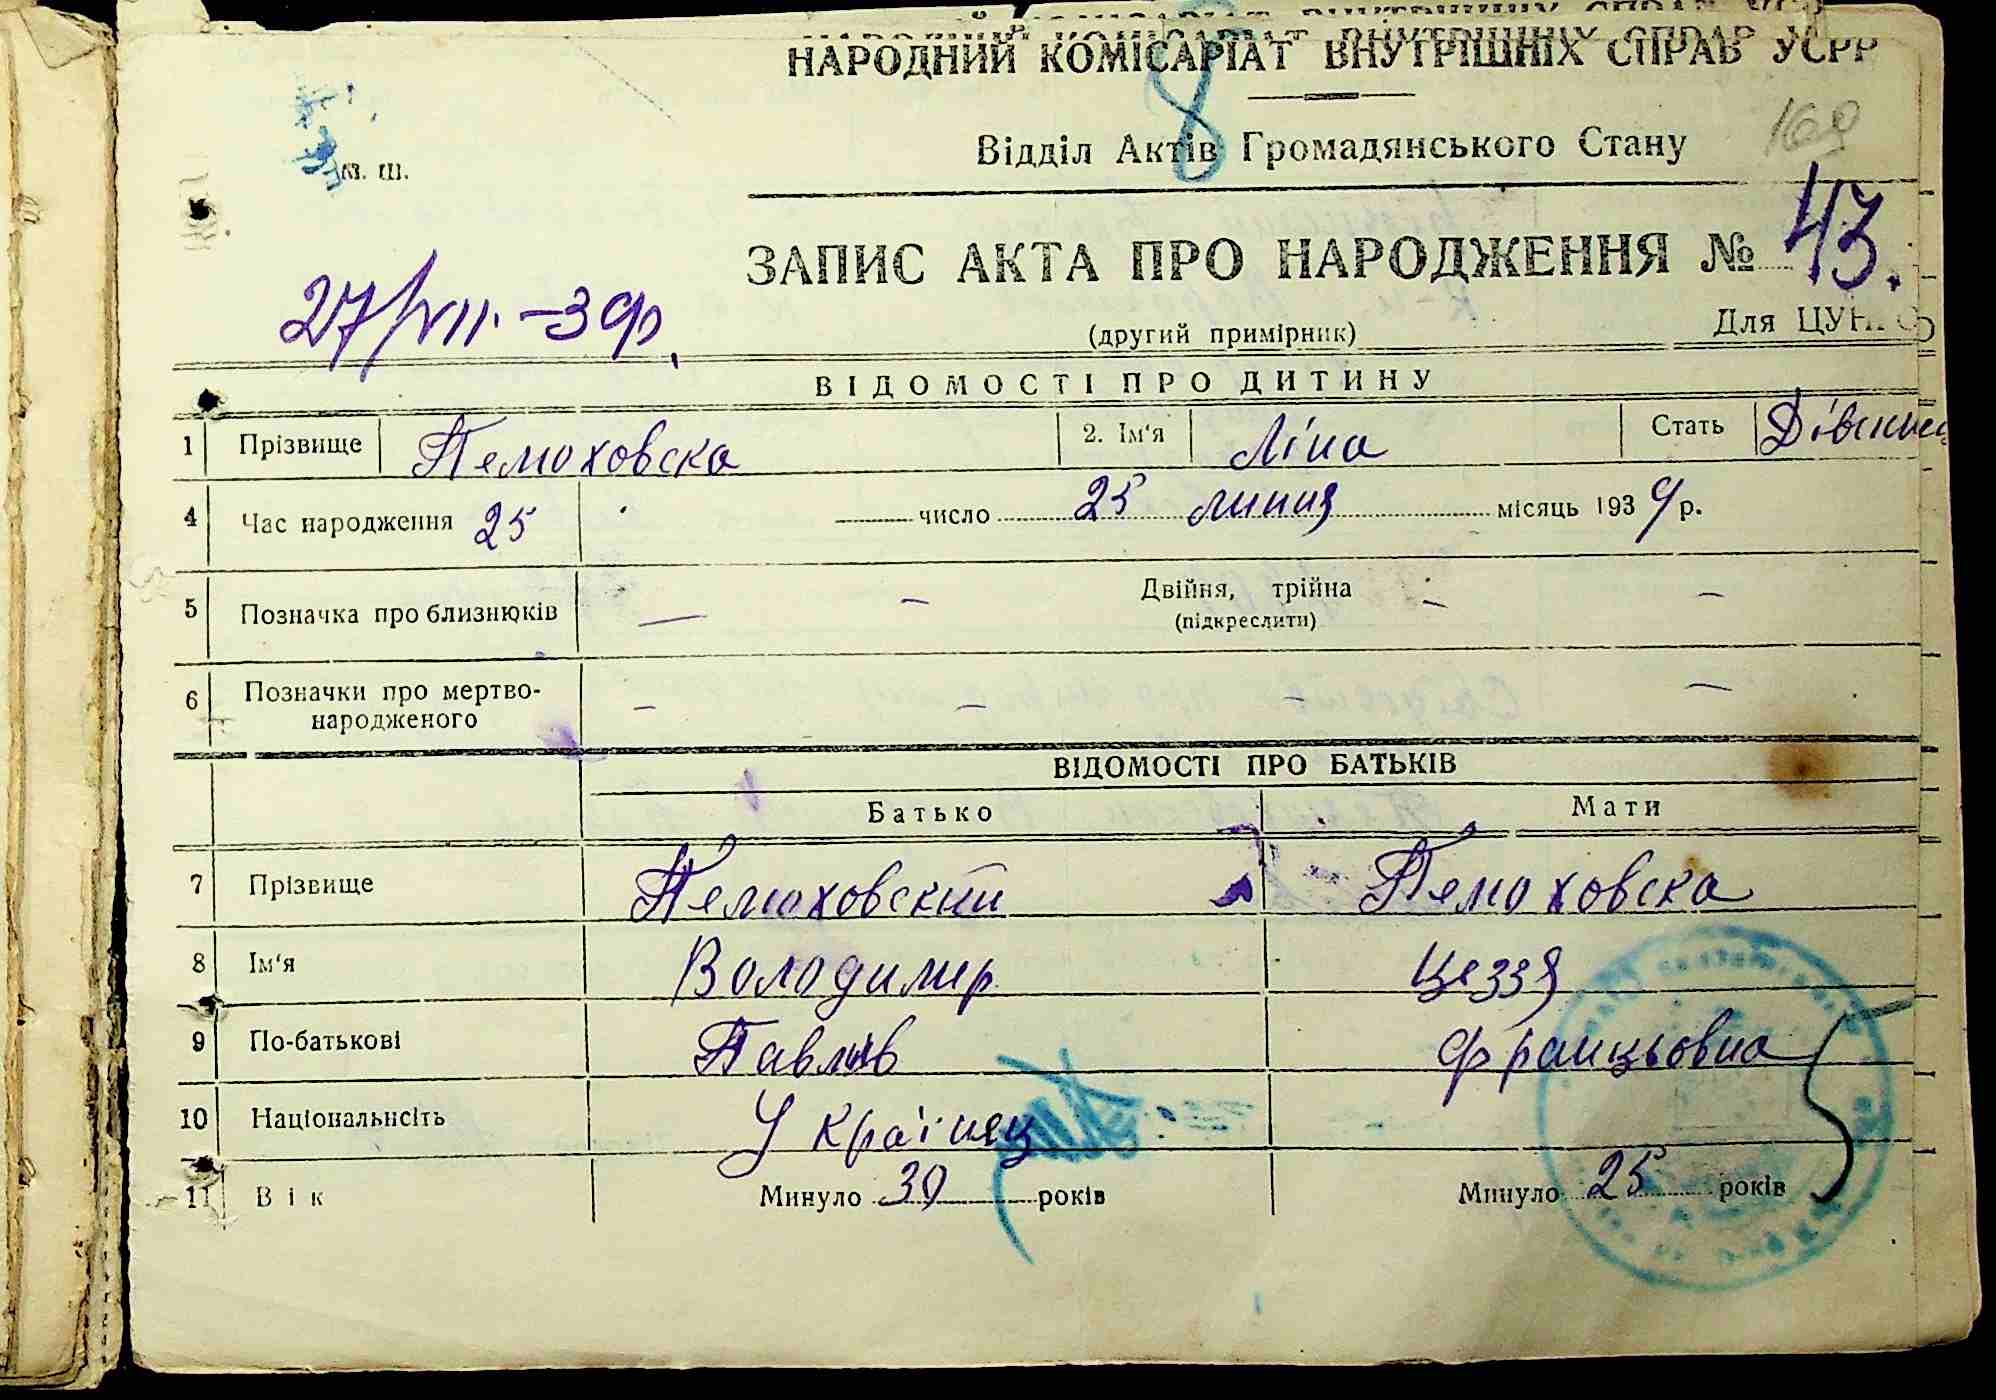 НАРОДНИЙ КОМІСАРІАТ ВНУТРІШНІХ СПРАВ УСРР
8
Відділ Актів Громадянського Стану
169
М. Ш.
ЗАПИС АКТА ПРО НАРОДЖЕННЯ № 43.
27/VII.-39р.
(другий примірник)
Для ЦУНГО
ВІДОМОСТІ ПРО ДИТИНУ
1 Прізвище Пемоховска 2. Ім'я Ліна Стать
4 Час народження 25 число 25 липня місяць 1939 р.
5 Позначка про близнюків — — Двійня, трійна — —
(підкреслити)
6 Позначки про мертво-
народженого — — — —
ВІДОМОСТІ ПРО БАТЬКІВ
Батько Мати
7 Прізвище Пемоховский Пемоховска
8 Ім'я Володимир Цеззя
9 По-батькові Павлів Францьовна
10 Національнсіть Українец
11 Вік Минуло 30 років Минуло 25 років